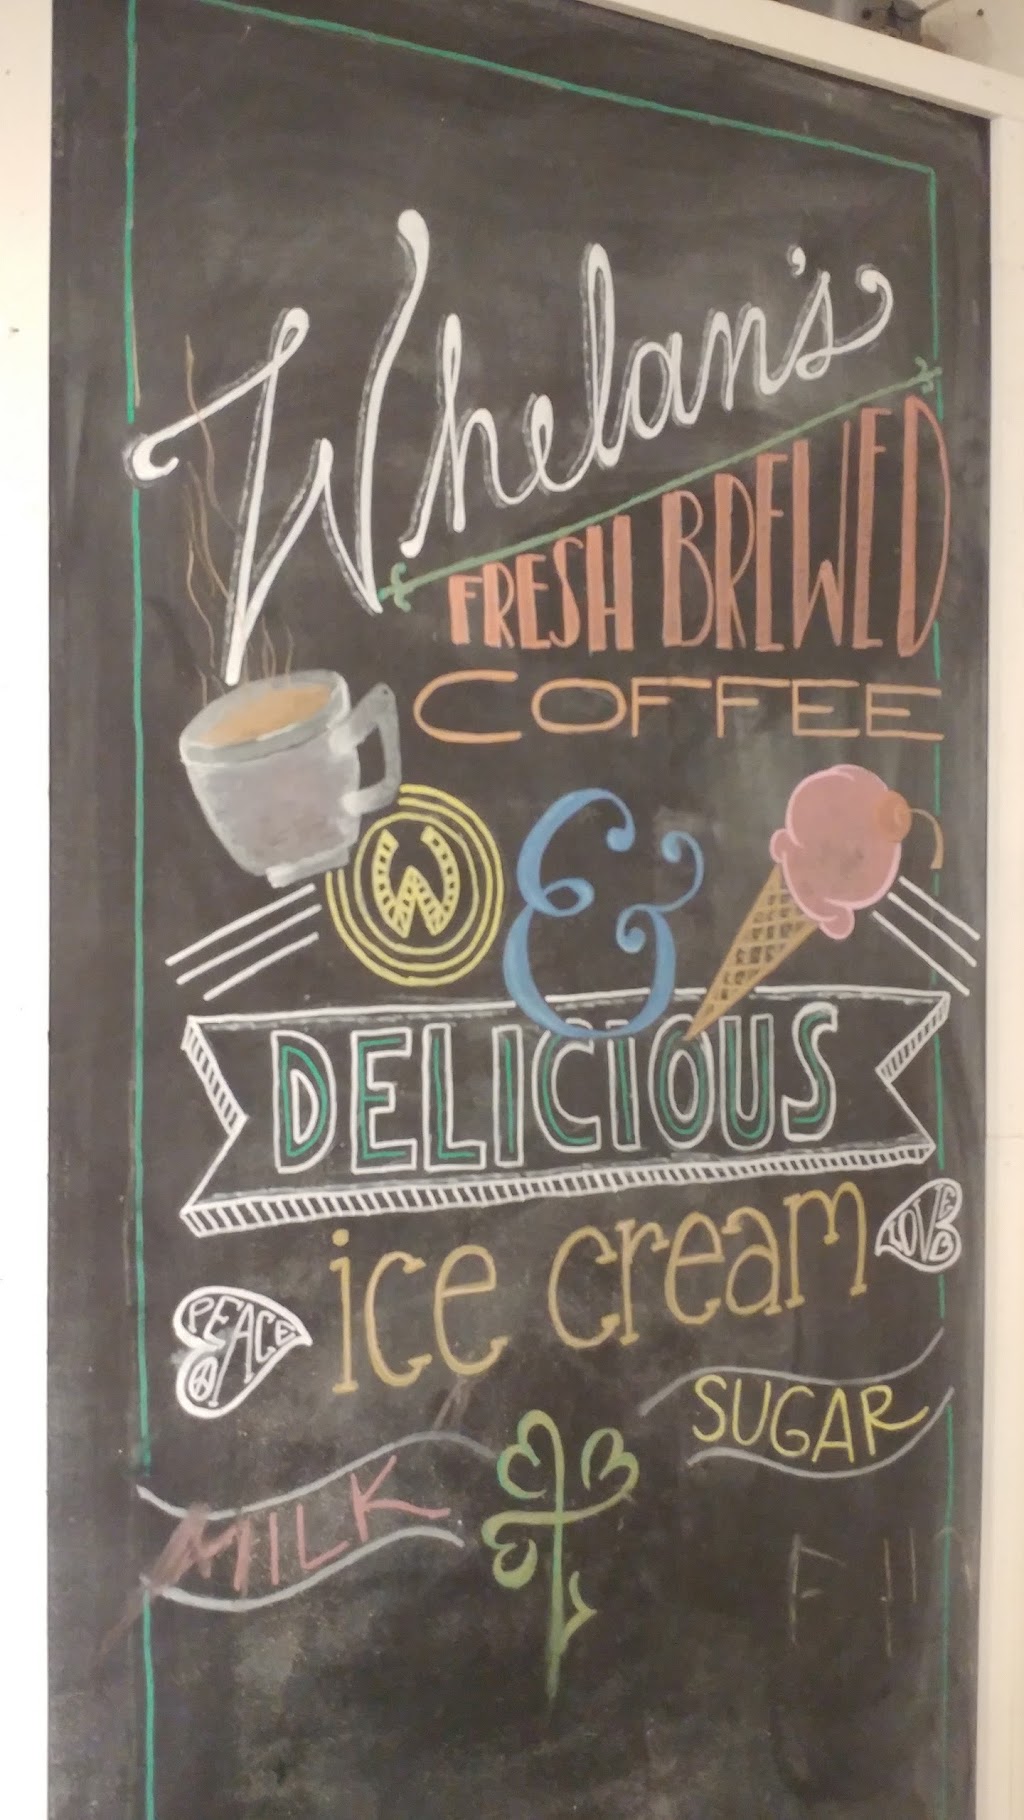 Whelan's
FRESH BREWED
COFFEE
W
&
DELICIOUS
ice cream
LOVE
PEACE
SUGAR
MILK